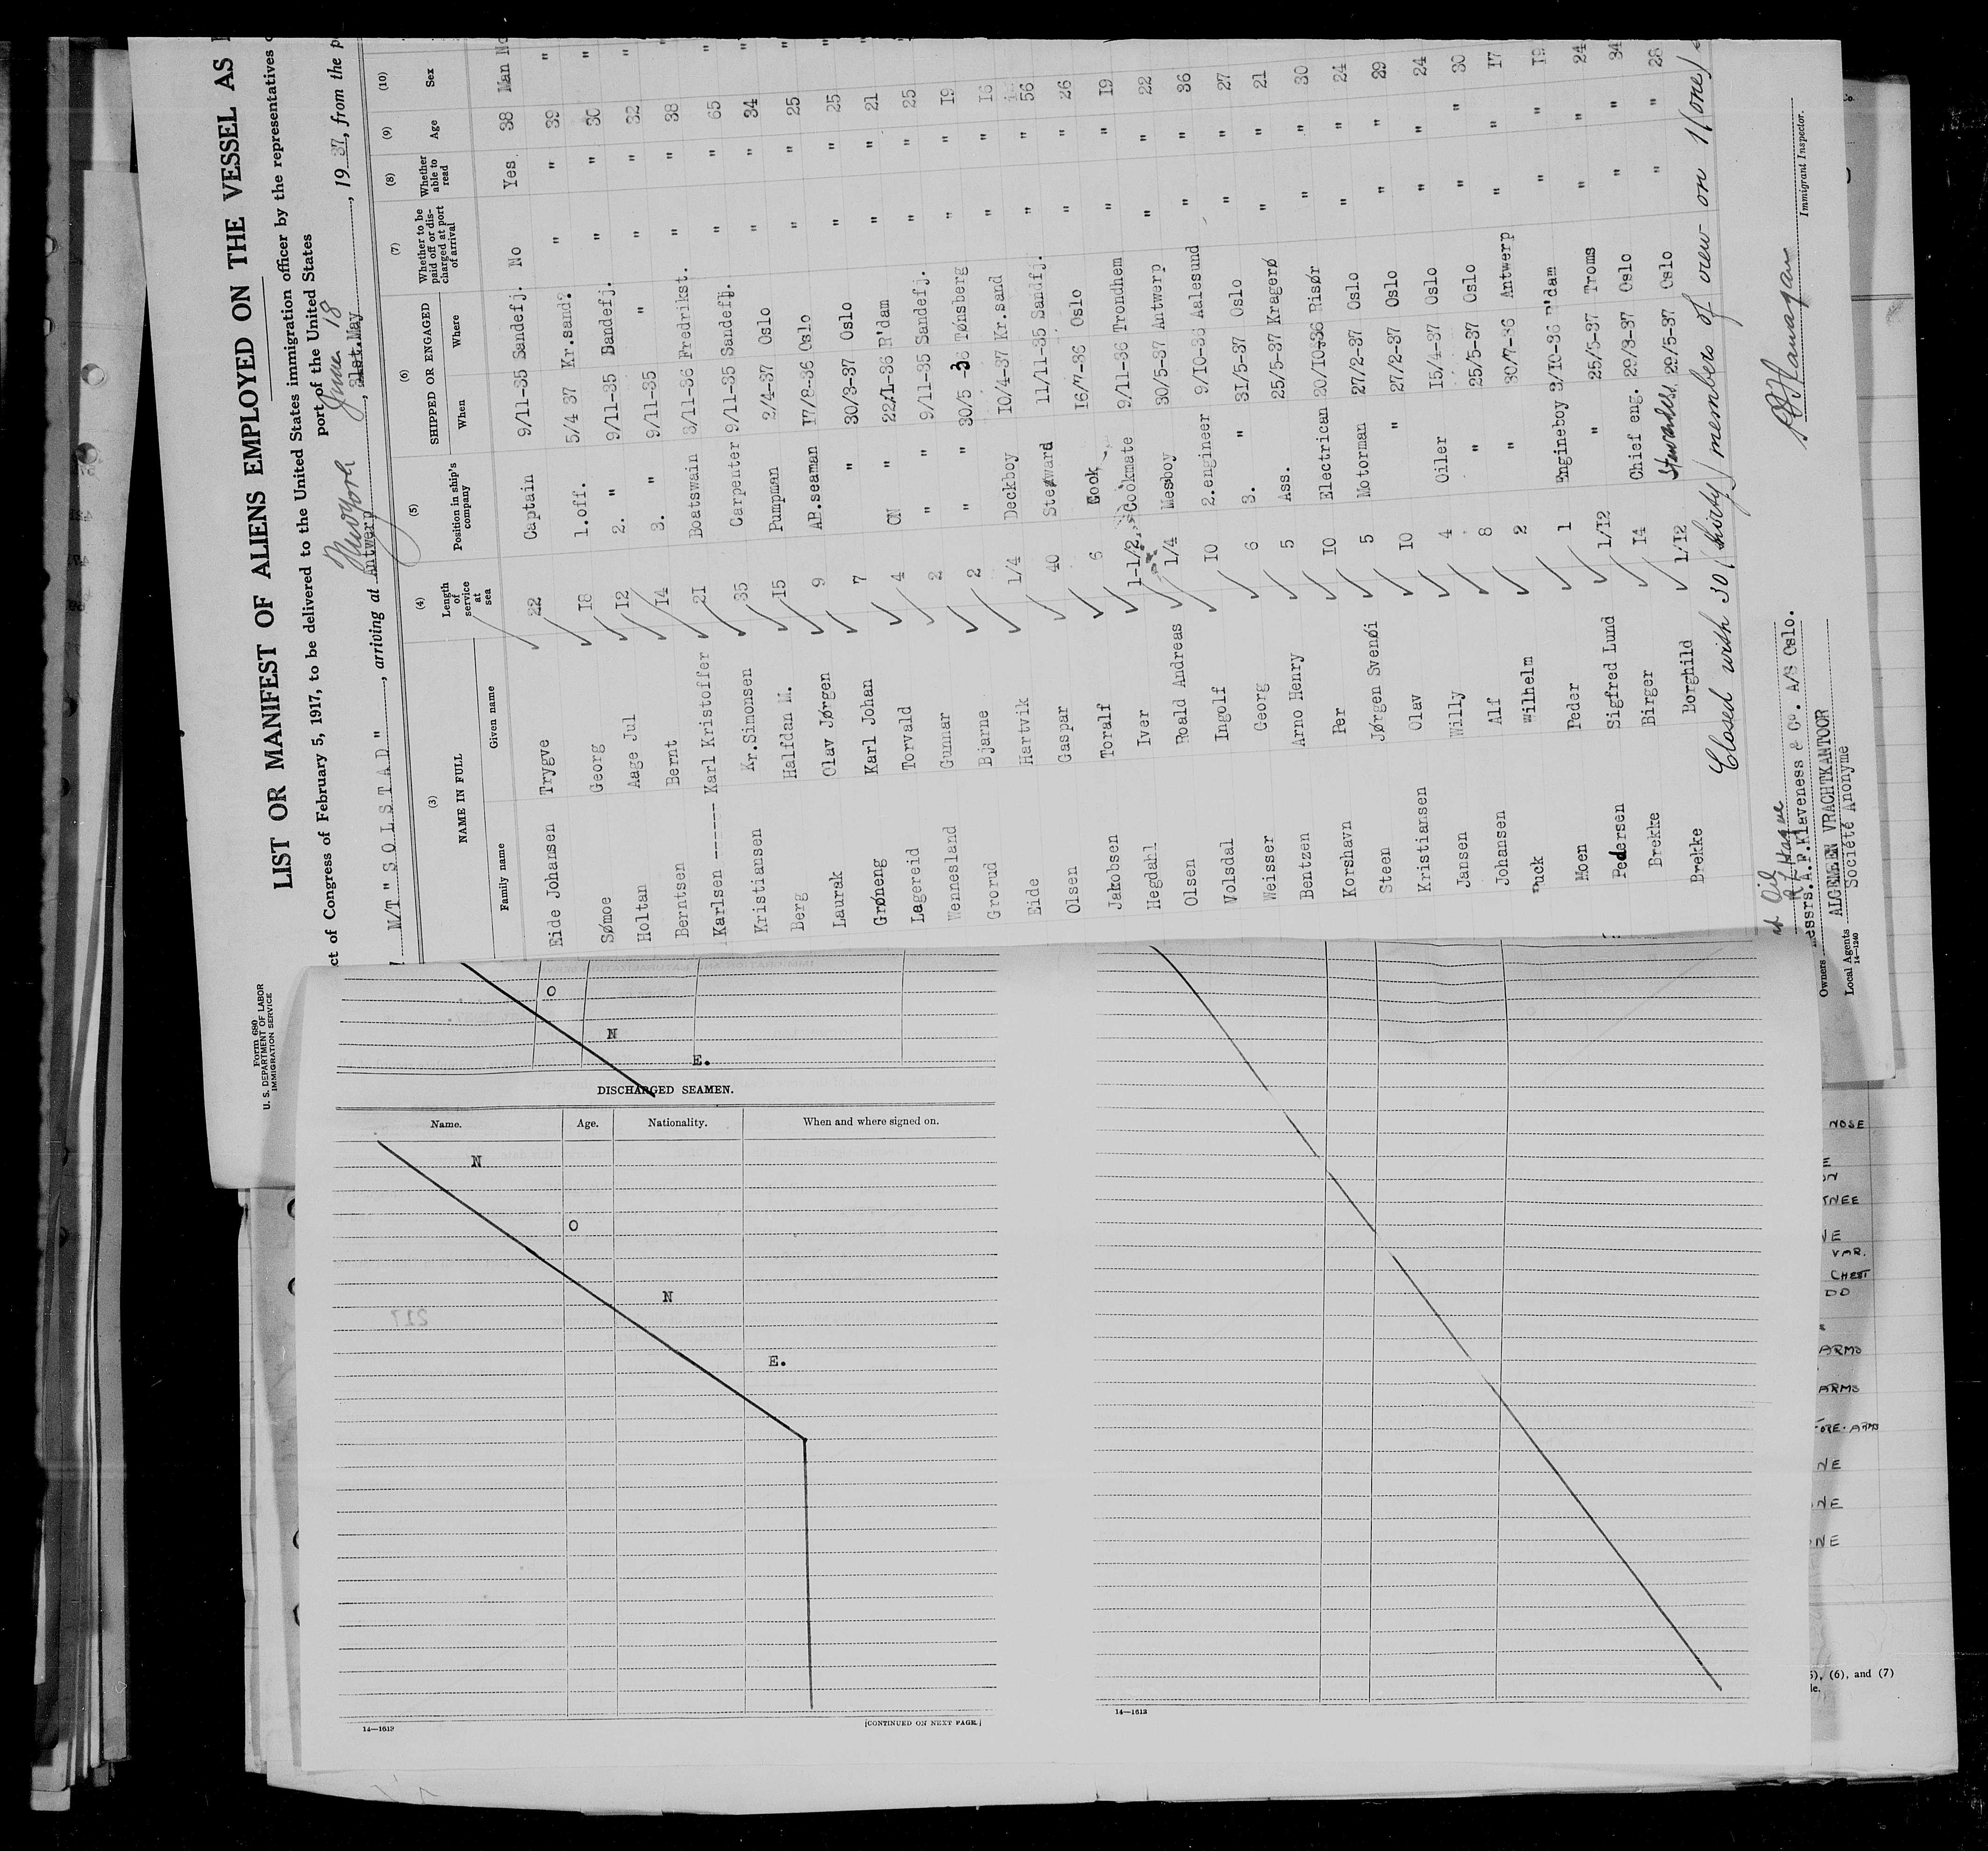 Form 680
U. S. DEPARTMENT OF LABOR
IMMIGRATION SERVICE
LIST OR MANIFEST OF ALIENS EMPLOYED ON THE VESSEL AS
ct of Congress of February 5, 1917, to be delivered to the United States immigration officer by the representatives
port of the United States
M/T " S O L S T A D ", arriving at Antwerp New York, 31st.May June 18, 1937, from the p
(3) (4) (5) (6) (7) (8) (9) (10)
NAME IN FULL Length of service at sea Position in ship's company SHIPPED OR ENGAGED Whether to be paid off or discharged at port of arrival Whether able to read Age Sex
Family name Given name When Where
Eide Johansen Trygve 22 Captain 9/11-35 Sandefj. No Yes 38 Man No
Sømoe Georg 18 1.off. 5/4 37 Kr.sand? " " 39 "
Holtan Aage Jul 12 2. " 9/11-35 Sandefj. " " 30 "
Berntsen Bernt 14 3. " 9/11-35 " " " 32 "
Karlsen ------ Karl Kristoffer 21 Boatswain 3/11-36 Fredrikst. " " 38 "
Kristiansen Kr.Simonsen 35 Carpenter 9/11-35 Sandefj. " " 65 "
Berg Halfdan M. 15 Pumpman 2/4-37 Oslo " " 34 "
Laurak Olav Jørgen 9 AB.seaman 17/8-36 Oslo " " 25 "
Grøneng Karl Johan 7 " 30/3-37 Oslo " " 25 "
Lagereid Torvald 4 ON " R'dam " " 21 "
Wennesland Gunnar 2 " 9/11-35 Sandefj. " " 25
Grorud Bjarne 2 " 30/5 -36 Tønsberg " " 19
Eide Hartvik 1/4 Deckboy 10/4-37 Kr.sand " " 16
Olsen Gaspar 40 Steward 11/11-35 Sandfj. " " 56
Jakobsen Toralf 6 Cook 16/7-36 Oslo " " 26
Hegdahl Iver 1-1/2 Cookmate 9/11-36 Trondhem " " 19
Olsen Roald Andreas 1/4 Mesboy 30/5-37 Antwerp " " 22
Volsdal Ingolf 10 2.engineer 9/10-36 Aalesund " " 36
Weisser Georg 6 3. " 31/5-37 Oslo " " 27
Bentzen Arno Henry 5 Ass. 25/5-37 Kragerø " " 21
Korshavn Per 10 Electrican 20/10-36 Risør " " 30
Steen Jørgen Svenøi 5 Motorman 27/2-37 Oslo " " 24
Kristiansen Olav 10 " 27/2-37 Oslo " " 29
Jansen Willy 4 Oiler 15/4-37 Oslo " " 24
Johansen Alf 8 " 25/5-37 Oslo " " 30
Puck Wilhelm 2 " 30/7-36 Antwerp " " 17
Moen Peder 1 Engineboy 3/10-36 R'dam " " 19
Pedersen Sigfred Lund 1/12 " 25/5-37 Troms " " 24
Brekke Birger 14 Chief eng. 29/3-37 Oslo " " 34
Brekke Borghild 1/12 Stewardess. 29/5-37 Oslo " " 28
Closed with 30 (thirty) members of crew on 1 (one)
Immigrant Inspector.
Owners Messrs.A.F.Klaveness & Co. A/S Oslo.
ALGEMEEN VRACHTKANTOOR
Local Agents Société Anonyme
14-1240
O
N
E.
DISCHARGED SEAMEN.
Name. Age. Nationality. When and where signed on.
N
O
N
217
E.
14—1613 [CONTINUED ON NEXT PAGE.]
14—1613
NOSE
VAR.
CHEST
ARMS
ARMS
FORE-ARM
NE
NE
ONE
(6), and (7)